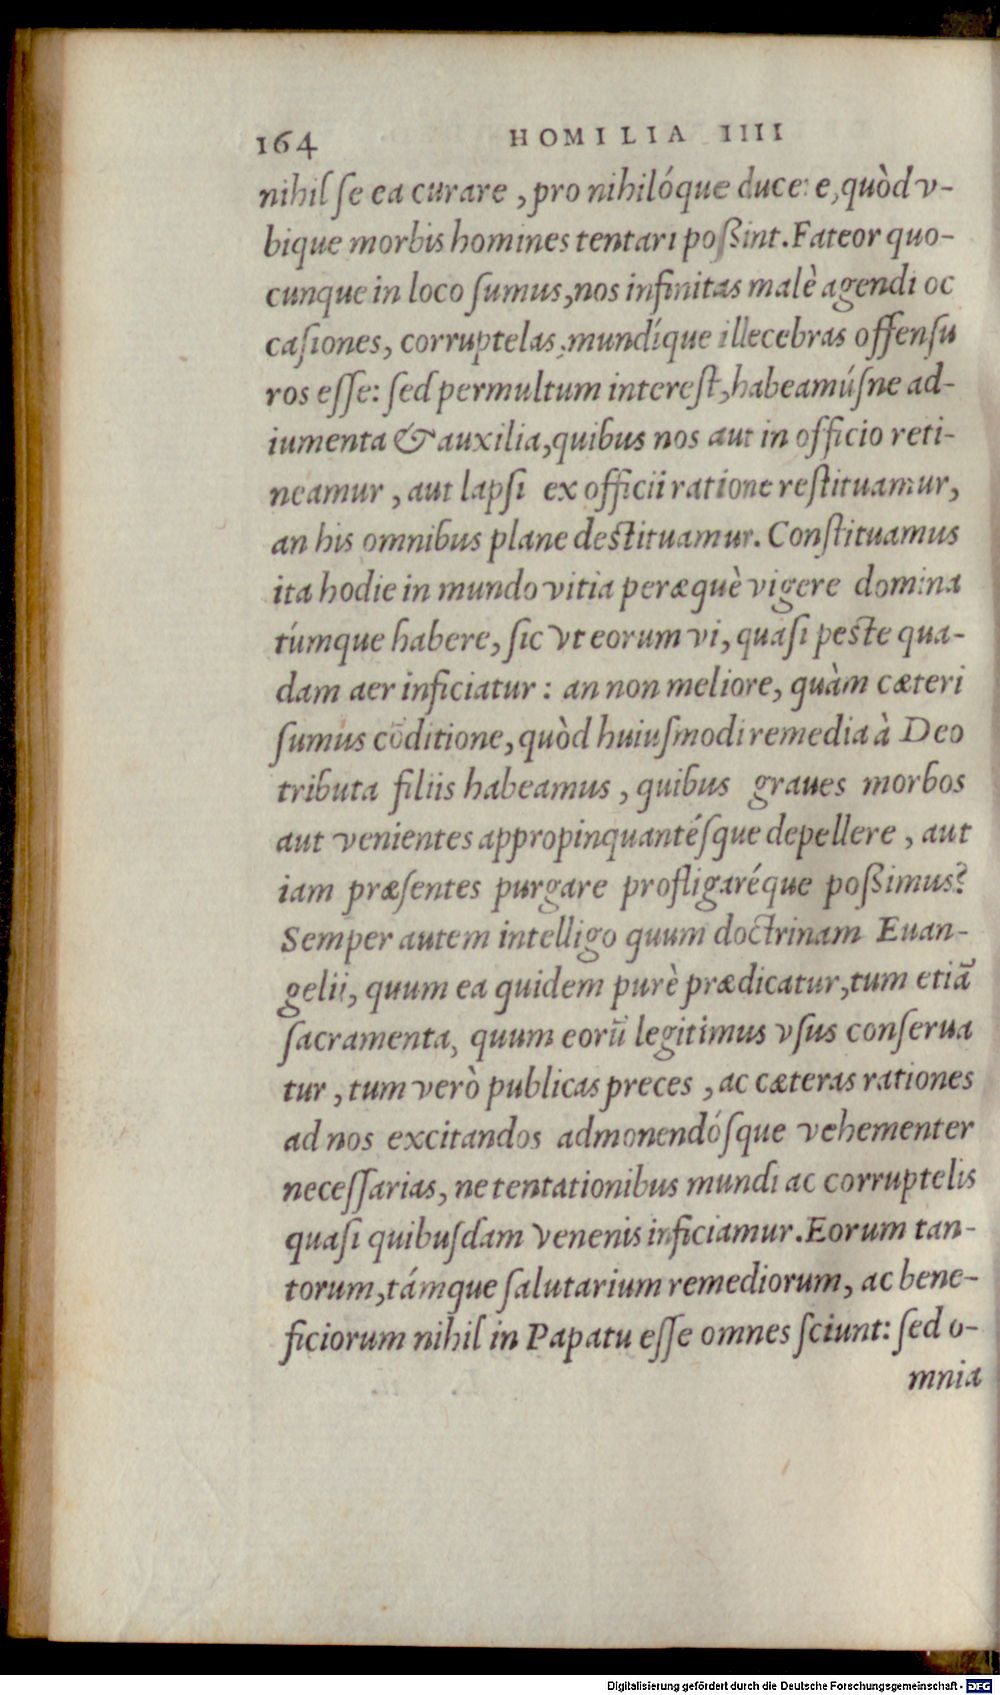 164 HOMILIA IIII
nihil ſe ea curare, pro nihilóque ducere, quòd v-
bique morbis homines tentari poßint. Fateor quo-
cunque in loco ſumus, nos infinitas malè agendi oc
caſiones, corruptelas, mundíque illecebras offenſu
ros eſſe: ſed permultum intereſt, habeamúſne ad-
iumenta & auxilia, quibus nos aut in officio reti-
neamur, aut lapſi ex officii ratione reſtituamur,
an his omnibus plane deſtituamur. Conſtituamus
ita hodie in mundo vitia peræquè vigere domina
túmque habere, ſic vt eorum vi, quaſi peſte qua-
dam aer inficiatur: an non meliore, quàm cæteri
ſumus cōditione, quòd huiuſmodi remedia à Deo
tributa filiis habeamus, quibus graues morbos
aut venientes appropinquantéſque depellere, aut
iam præſentes purgare profligaréque poßimus?
Semper autem intelligo quum doctrinam Euan-
gelii, quum ea quidem purè prædicatur, tum etiā
ſacramenta, quum eorū legitimus vſus conſerua
tur, tum verò publicas preces, ac cæteras rationes
ad nos excitandos admonendóſque vehementer
neceſſarias, ne tentationibus mundi ac corruptelis
quaſi quibuſdam venenis inficiamur. Eorum tan-
torum, támque ſalutarium remediorum, ac bene-
ficiorum nihil in Papatu eſſe omnes ſciunt: ſed o-
mnia
Digitalisierung gefördert durch die Deutsche Forschungsgemeinschaft - DFG